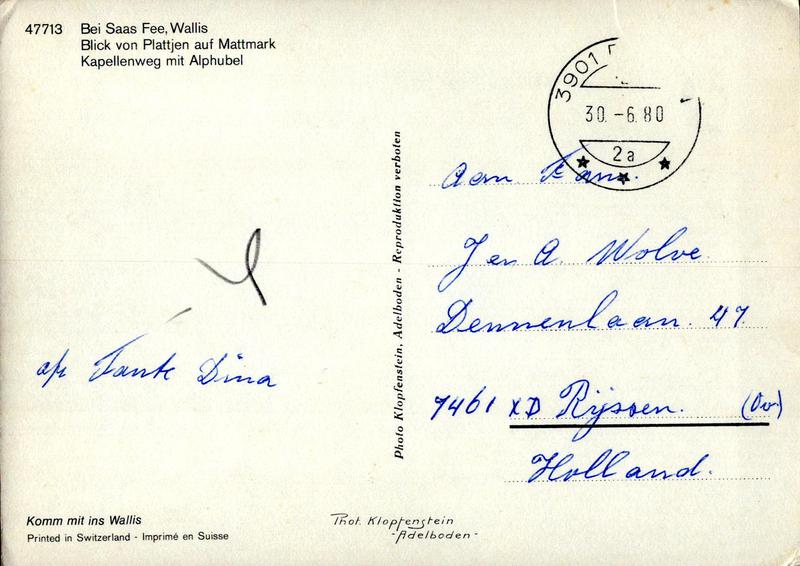 47713 Bei Saas Fee, Wallis
Blick von Plattjen auf Mattmark
Kapellenweg mit Alphubel
3901
30.-6.80
2a
Aan Fam.
J en A. Wolve
Dennenlaan. 47.
7461 XD Rijssen. (Ov)
Holland.
Tante Dina
Photo Klopfenstein, Adelboden - Reproduktion verboten
Komm mit ins Wallis
Printed in Switzerland - Imprimé en Suisse
Phot. Klopfenstein
-Adelboden-